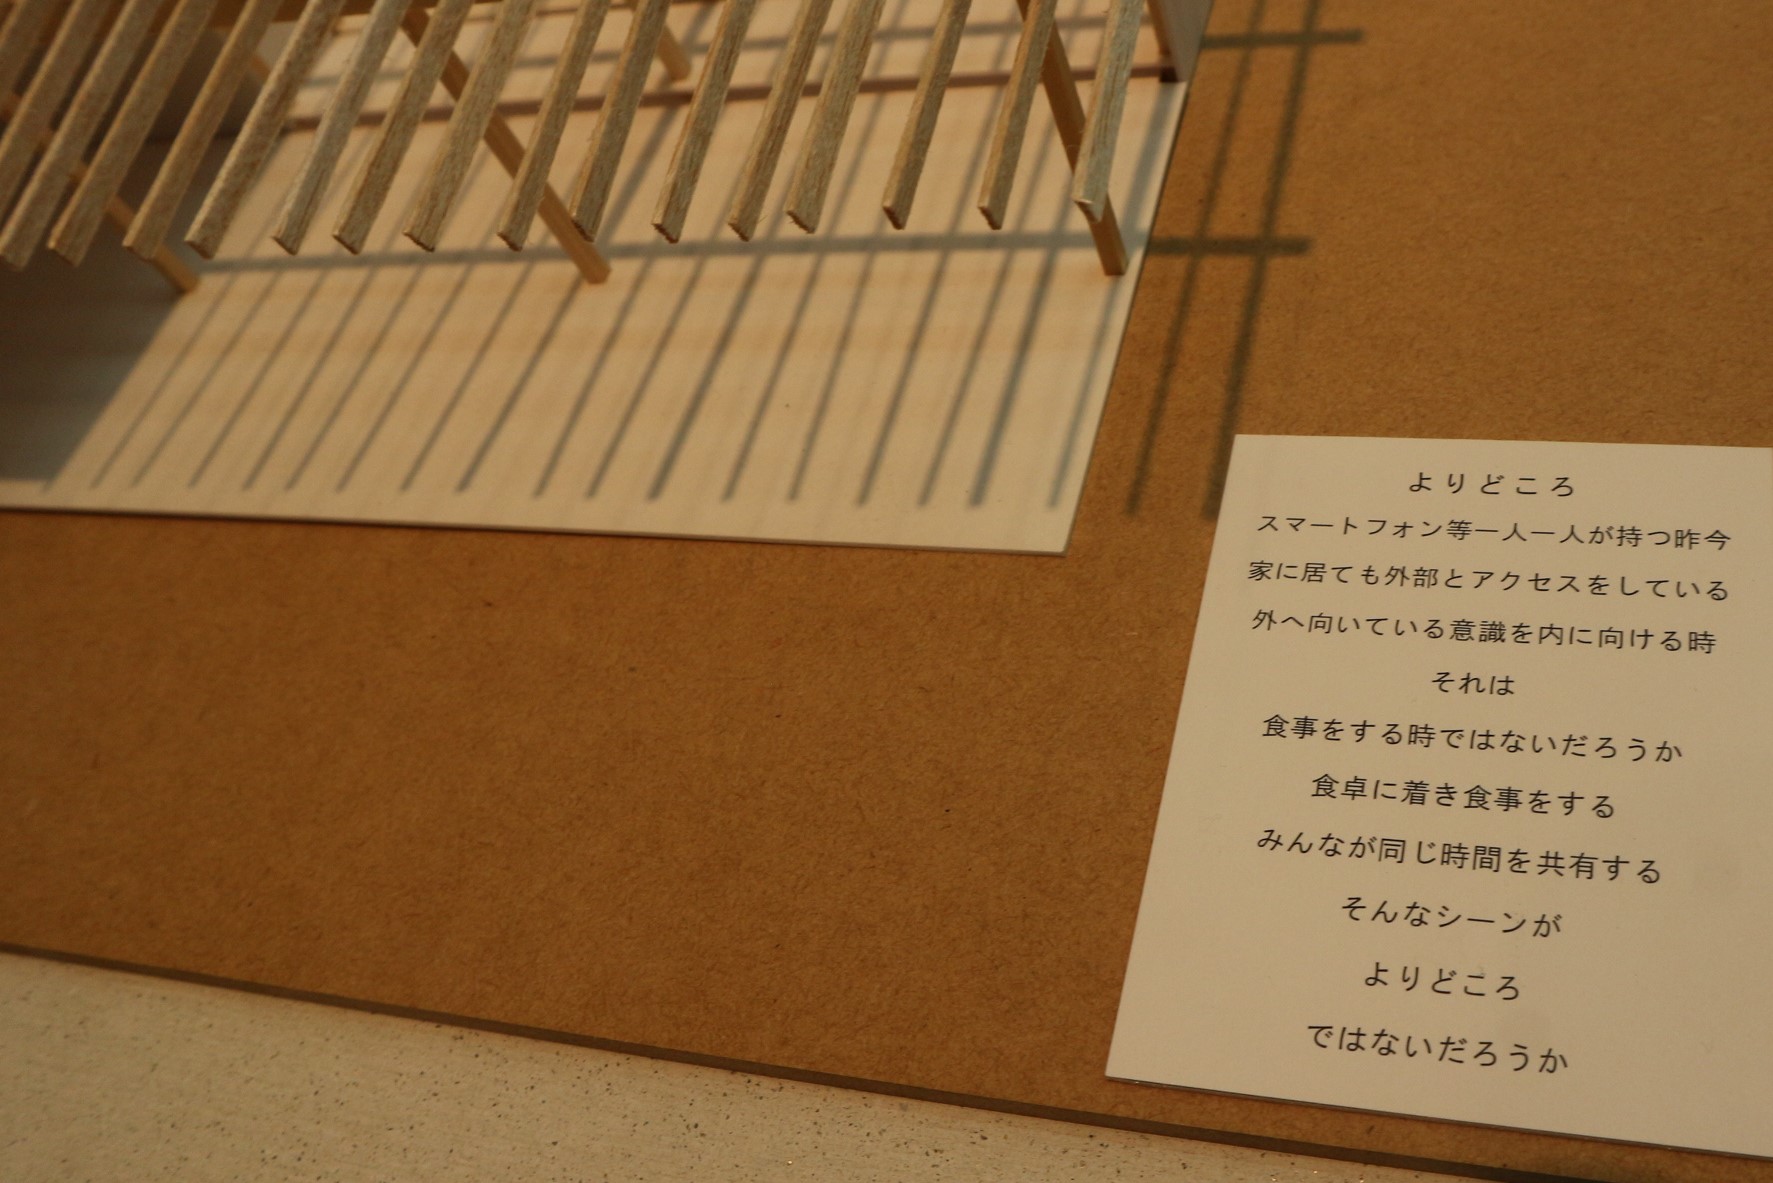 よりどころ
スマートフォン等一人一人が持つ昨今
家に居ても外部とアクセスをしている
外へ向いている意識を内に向ける時
それは
食事をする時ではないだろうか
食卓に着き食事をする
みんなが同じ時間を共有する
そんなシーンが
よりどころ
ではないだろうか